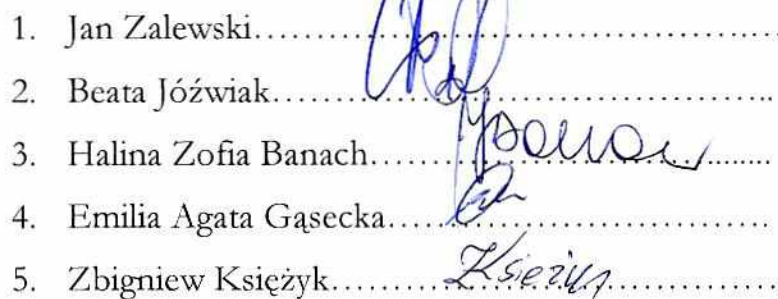 1. Jan Zalewski........................................
2. Beata Jóźwiak........................................
3. Halina Zofia Banach........................................
4. Emilia Agata Gąsecka........................................
5. Zbigniew Księżyk........ZKsiężyk........